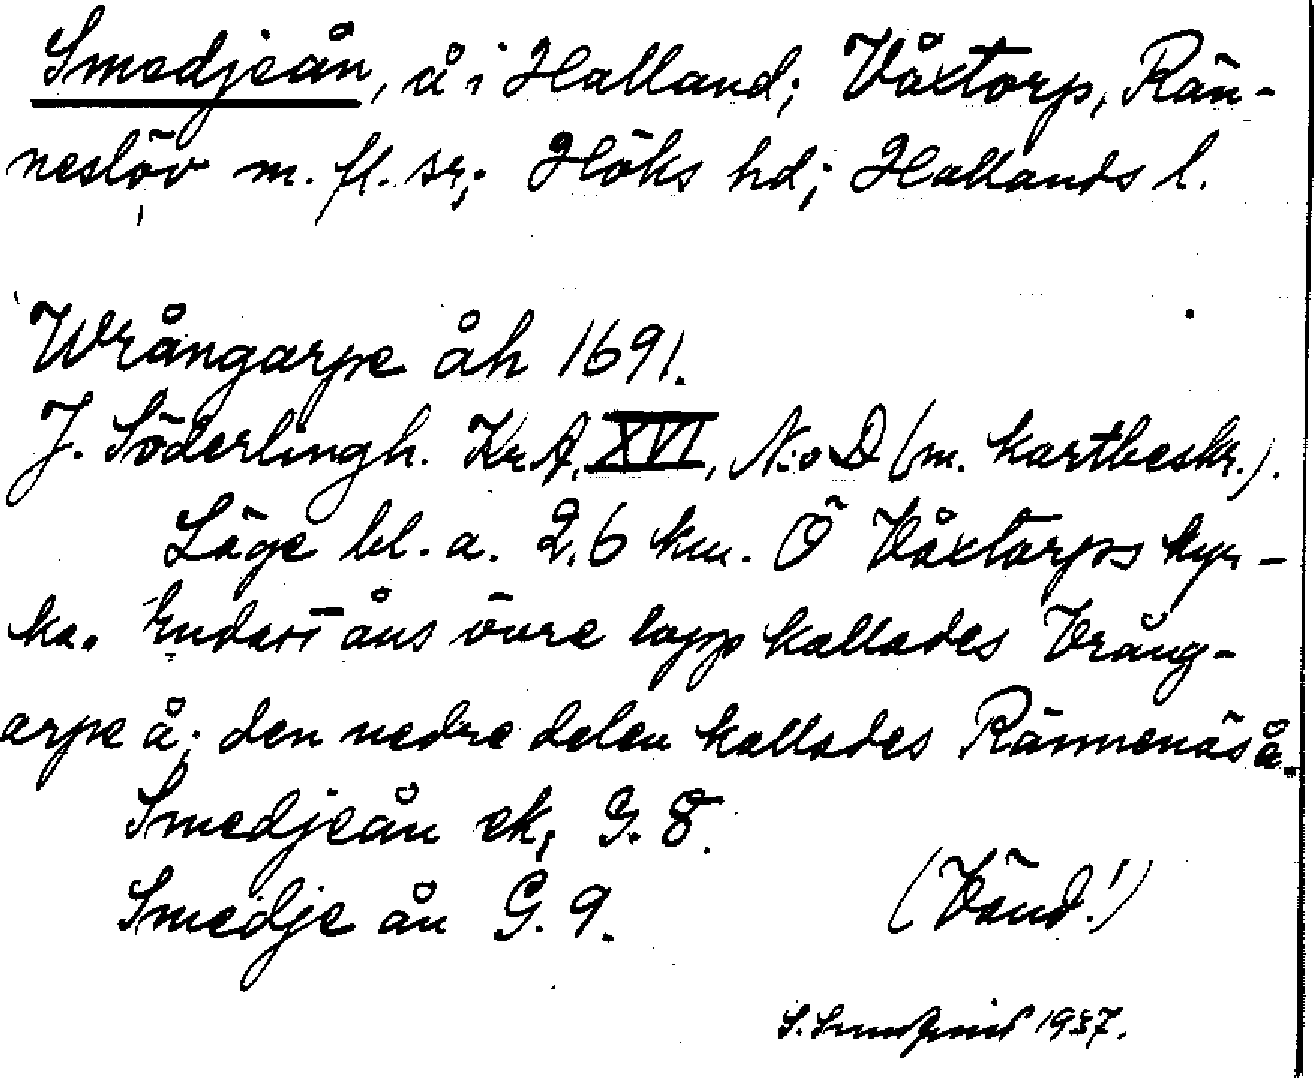 Smedjeån, å i Halland; Våxtorp, Rän-
neslöv m. fl. sr; Höks hd; Hallands l.
Wrångarpe åh 1691.
J. Söderlingh. Kr A, XVI, N:o D (m. kartbeskr.).
Läge bl. a. 2,6 km. Ö Våxtorps kyr-
ka. Endast åns övre lopp kallades Vrång-
arpe å; den nedre delen kallades Rännenäs å.
Smedjeån ek, G. 8.
Smedje ån G. 9.
(Vänd!)
S. 1937.